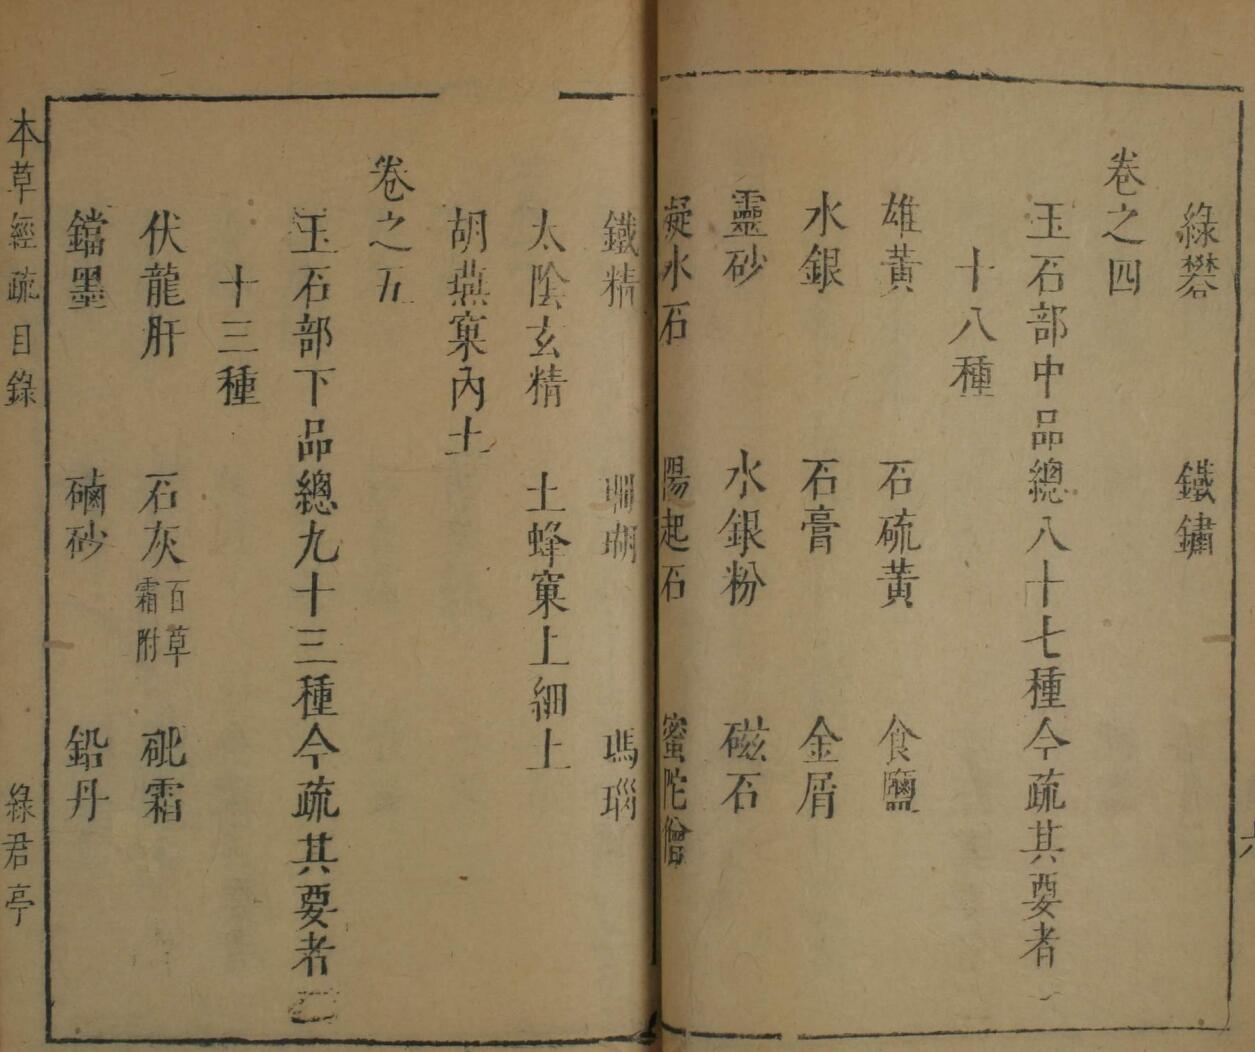 綠礬 鐵鏽
卷之四
玉石部中品總八十七種今疏其要者一
十八種
雄黃 石硫黃 食鹽
水銀 石膏 金屑
靈砂 水銀粉 磁石
凝水石 陽起石 蜜陀僧
鐵精 珊瑚 瑪瑙
太陰玄精 土蜂窠上細土
胡燕窠內土
卷之五
玉石部下品總九十三種今疏其要者二
十三種
伏龍肝 石灰 百草霜附 砒霜
鐺墨 硇砂 鉛丹
本草經疏目錄 綠君亭